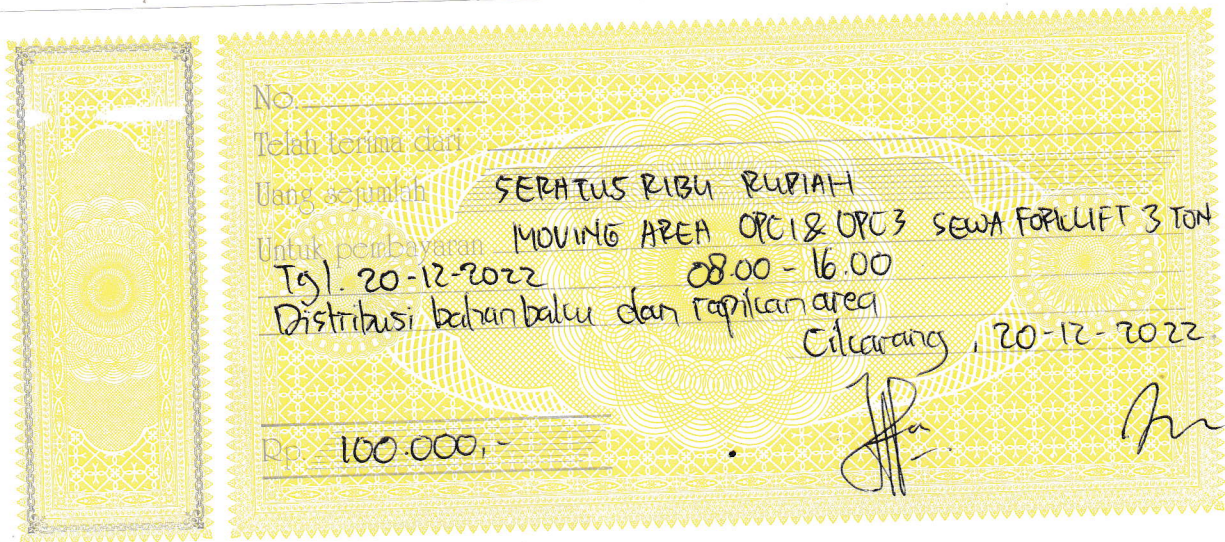 No.
Telah terima dari
Uang sejumlah SERATUS RIBU RUPIAH
Untuk pembayaran MOVING AREA OPC1 & OPC3 SEWA FORKLIFT 3 TON
Tgl. 20-12-2022 08.00 - 16.00
Distribusi bahan baku dan rapikan area
Cikarang, 20-12-2022
Rp. 100.000,-